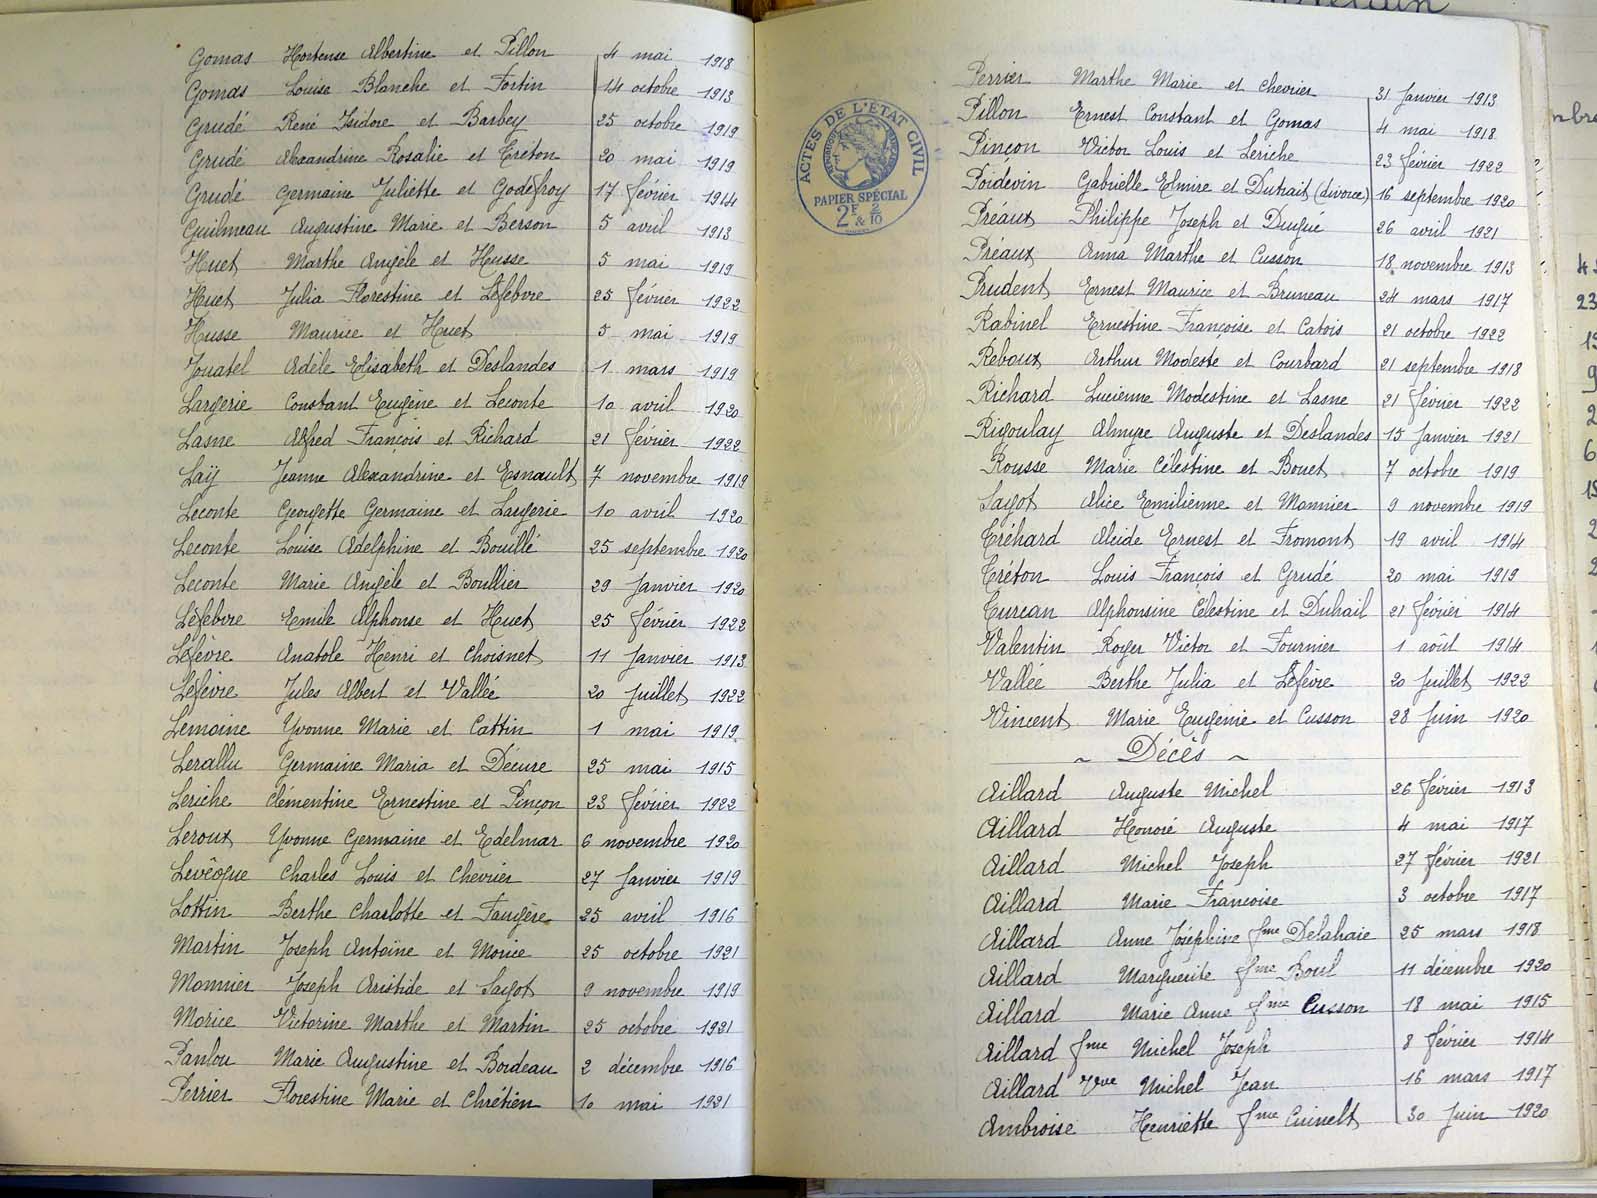 Gomas Hortense Albertine et Pillon 4 mai 1918
Gomas Louise Blanche et Fortin 14 octobre 1913
Grudé René Isidore et Barbey 25 octobre 1919
Grudé Alexandrine Rosalie et Créton 20 mai 1919
Grudé Germaine Juliette et Godefroy 17 février 1914
Guilmeau Augustine Marie et Berson 5 avril 1913
Huet Marthe Angèle et Husse 5 mai 1919
Huet Julia Florestine et Lefebvre 25 février 1922
Husse Maurice et Huet 5 mai 1919
Jouatel Adèle Elisabeth et Deslandes 1 mars 1919
Largerie Constant Eugène et Leconte 10 avril 1920
Lasne Alfred François et Richard 21 février 1922
Laÿ Jeanne Alexandrine et Esnault 7 novembre 1919
Leconte Georgette Germaine et Largerie 10 avril 1920
Leconte Louise Adelphine et Bouillé 25 septembre 1920
Leconte Marie Angèle et Boullier 29 Janvier 1920
Lefebvre Emile Alphonse et Huet 25 février 1922
Lefèvre Anatole Henri et Choisnet 11 Janvier 1913
Lefèvre Jules Albert et Vallée 20 Juillet 1922
Lemoine Yvonne Marie et Cottin 1 mai 1919
Lerallu Germaine Maria et Décure 25 mai 1915
Leriche Clémentine Ernestine et Pinçon 23 février 1922
Leroux Yvonne Germaine et Edelmar 6 novembre 1920
Levêque Charles Louis et Chevrier 27 Janvier 1919
Lottin Berthe Charlotte et Faugère 25 avril 1916
Martin Joseph Antoine et Morice 25 octobre 1921
Monnier Joseph Aristide et Sagot 9 novembre 1919
Morice Victorine Marthe et Martin 25 octobre 1921
Panlou Marie Augustine et Bordeau 2 décembre 1916
Perrier Florestine Marie et Chrétien 10 mai 1921
ACTES DE L'ÉTAT CIVIL
PAPIER SPÉCIAL
2F & 2/10
Perrier Marthe Marie et Chevrier 31 Janvier 1913
Pillon Ernest Constant et Gomas 4 mai 1918
Pinçon Victor Louis et Leriche 23 février 1922
Poidevin Gabrielle Elmire et Dutrait (divorce) 16 septembre 1920
Préaux Philippe Joseph et Dugué 26 avril 1921
Préaux Anna Marthe et Cusson 18 novembre 1913
Prudent Ernest Maurice et Bruneau 24 mars 1917
Rabinel Ernestine Françoise et Catois 21 octobre 1922
Reboux Arthur Modeste et Courbard 21 septembre 1918
Richard Lucienne Modestine et Lasne 21 février 1922
Rigoulay Almyre Auguste et Deslandes 15 Janvier 1921
Rousse Marie Célestine et Bouet 7 octobre 1919
Sagot Alice Emilienne et Monnier 9 novembre 1919
Tréhard Alcide Ernest et Fromont 19 avril 1914
Créton Louis François et Grudé 20 mai 1919
Turcan Alphonsine Célestine et Duhail 21 février 1914
Valentin Roger Victor et Fournier 1 août 1914
Vallée Berthe Julia et Lefèvre 20 Juillet 1922
Vincent Marie Eugénie et Cusson 28 Juin 1920
~ Décès ~
Aillard Auguste Michel 26 février 1913
Aillard Honoré Auguste 4 mai 1917
Aillard Michel Joseph 27 février 1921
Aillard Marie Françoise 3 octobre 1917
Aillard Anne Joséphine fme Delahaie 25 mars 1918
Aillard Marguerite fme Boul 11 décembre 1920
Aillard Marie Anne fme Cusson 18 mai 1915
Aillard fme Michel Joseph 8 février 1914
Aillard Vve Michel Jean 16 mars 1917
Ambroise Henriette fme Cuinelt 30 Juin 1920